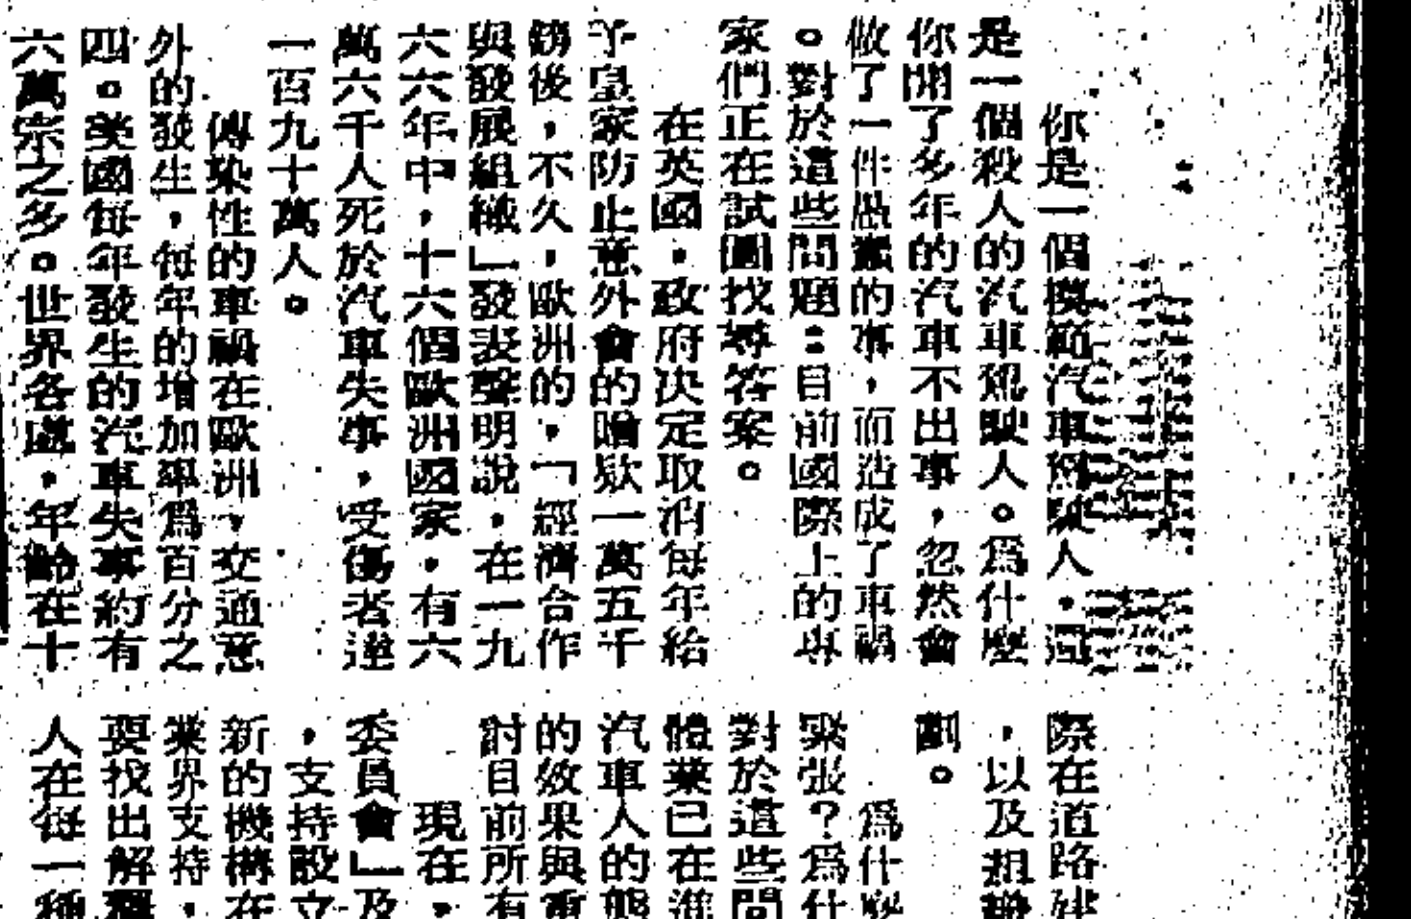 你是一個模範汽車駕駛人，還
是一個殺人的汽車駕駛人。爲什麼
你開了多年的汽車不出事，忽然會
做了一件愚蠢的事，而造成了車禍
。對於這些問題：目前國際上的專
家們正在試圖找尋答案。
在英國，政府決定取消每年給
予皇家防止意外會的贈欵一萬五千
鎊後，不久，歐洲的，「經濟合作
與發展組織」發表聲明說，在一九
六六年中，十六個歐洲國家，有六
萬六千人死於汽車失事，受傷者達
一百九十萬人。
傳染性的車禍在歐洲，交通意
外的發生，每年的增加率爲百分之
四。美國每年發生的汽車失事約有
六萬宗之多。世界各處，年齡在十
際在道路建
，以及担
劃。
爲什麼
緊張？爲什
對於這些問
體業已在進
汽車人的態
的效果與重
討目前所有
現在，
委員會」及
，支持設立
新的機構在
業界支持，
要找出解釋
人在每一種